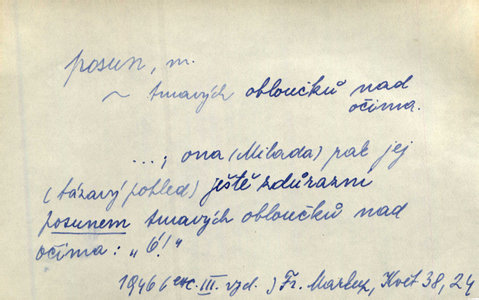 posun, m.
~ tmavých obloučků nad
očima.
...; ona (Milada) pak jej
(tázavý pohled) ještě zdůrazní
posunem tmavých obloučků nad
očima: „ó!"
1946 ( III. vyd.) Fr. Květ 38, 24